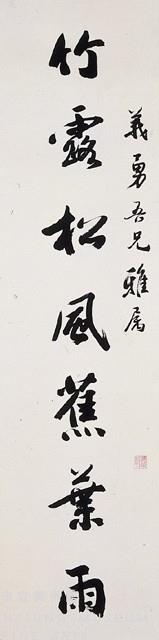 義勇吾兄雅屬
竹露松風蕉葉雨